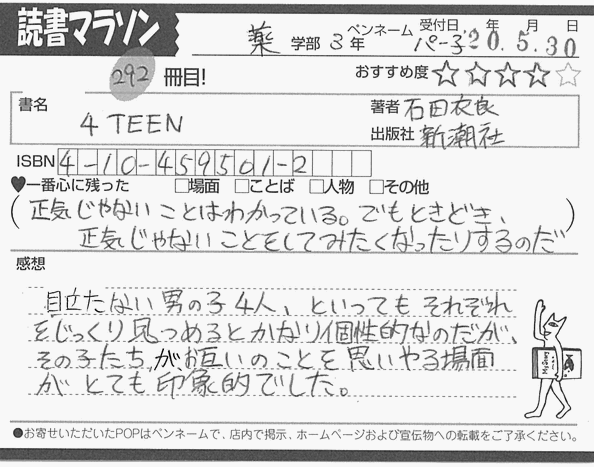 読書マラソン
薬 学部 3年 ペンネーム パー子 受付日 '20年 5.月 30日
292 冊目!
おすすめ度 ★★★★☆
書名 4 TEEN
著者 石田衣良
出版社 新潮社
ISBN 4-10-459501-2
♥一番心に残った □場面 □ことば □人物 □その他
(正気じゃないことはわかっている。でもときどき、
正気じゃないことをしてみたくなったりするのだ)
感想
目立たない男の子4人、といってもそれぞれ
をじっくり見つめるとかなり個性的なのだが、
その子たちが、お互いのことを思いやる場面
がとても印象的でした。
●お寄せいただいたPOPはペンネームで、店内で掲示、ホームページおよび宣伝物への転載をご了承ください。